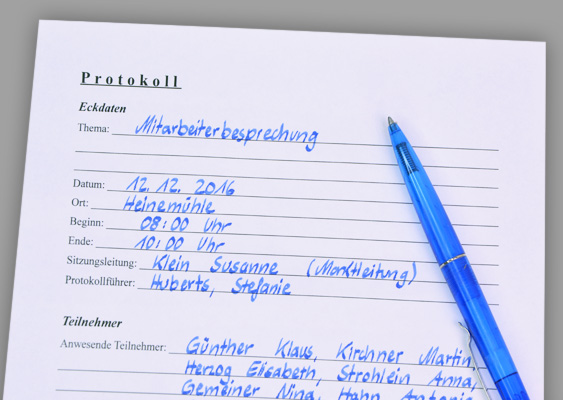 Protokoll
Eckdaten
Thema: Mitarbeiterbesprechung
Datum: 12.12.2016
Ort: Heinemühle
Beginn: 08:00 Uhr
Ende: 10:00 Uhr
Sitzungsleitung: Klein Susanne (Marktleitung)
Protokollführer: Huberts, Stefanie
Teilnehmer
Anwesende Teilnehmer: Günther Klaus, Kirchner Martin,
Herzog Elisabeth, Strohlein Anna,
Gemeiner Nina, Hahn Antonia